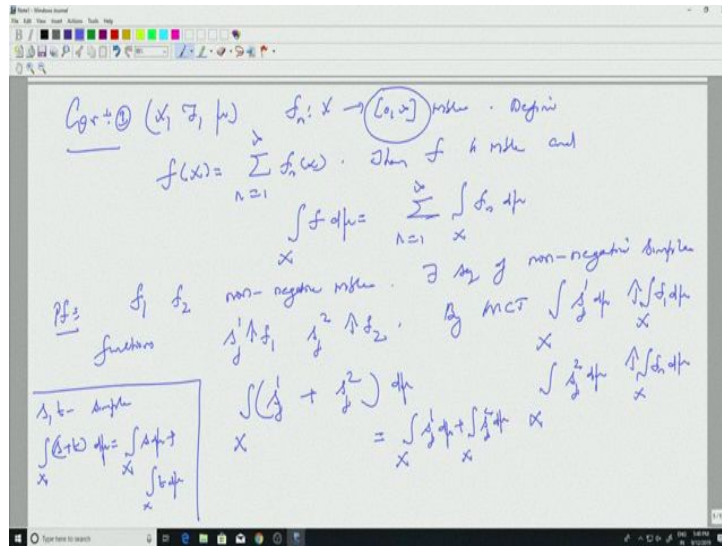 Note1 - Windows Journal
File Edit View Insert Actions Tools Help
Cor:- ① (X, F, μ) f_n : X → [0, ∞] mble. Define
f(x) = ∑_{n=1}^{∞} f_n(x). Then f is mble and
∫_X f dμ = ∑_{n=1}^{∞} ∫_X f_n dμ
Pf:- f_1 f_2 non-negative mble. ∃ seq of non-negative simple
functions s_j^1 ↑ f_1 s_j^2 ↑ f_2. By MCT ∫_X s_j^1 dμ ↑ ∫_X f_1 dμ
∫_X s_j^2 dμ ↑ ∫_X f_2 dμ
∫_X (s_j^1 + s_j^2) dμ
= ∫_X s_j^1 dμ + ∫_X s_j^2 dμ
s, t - simple
∫_X (s+t) dμ = ∫_X s dμ +
∫_X t dμ
1/1
Type here to search
ENG 5:48 PM
IN 9/12/2019